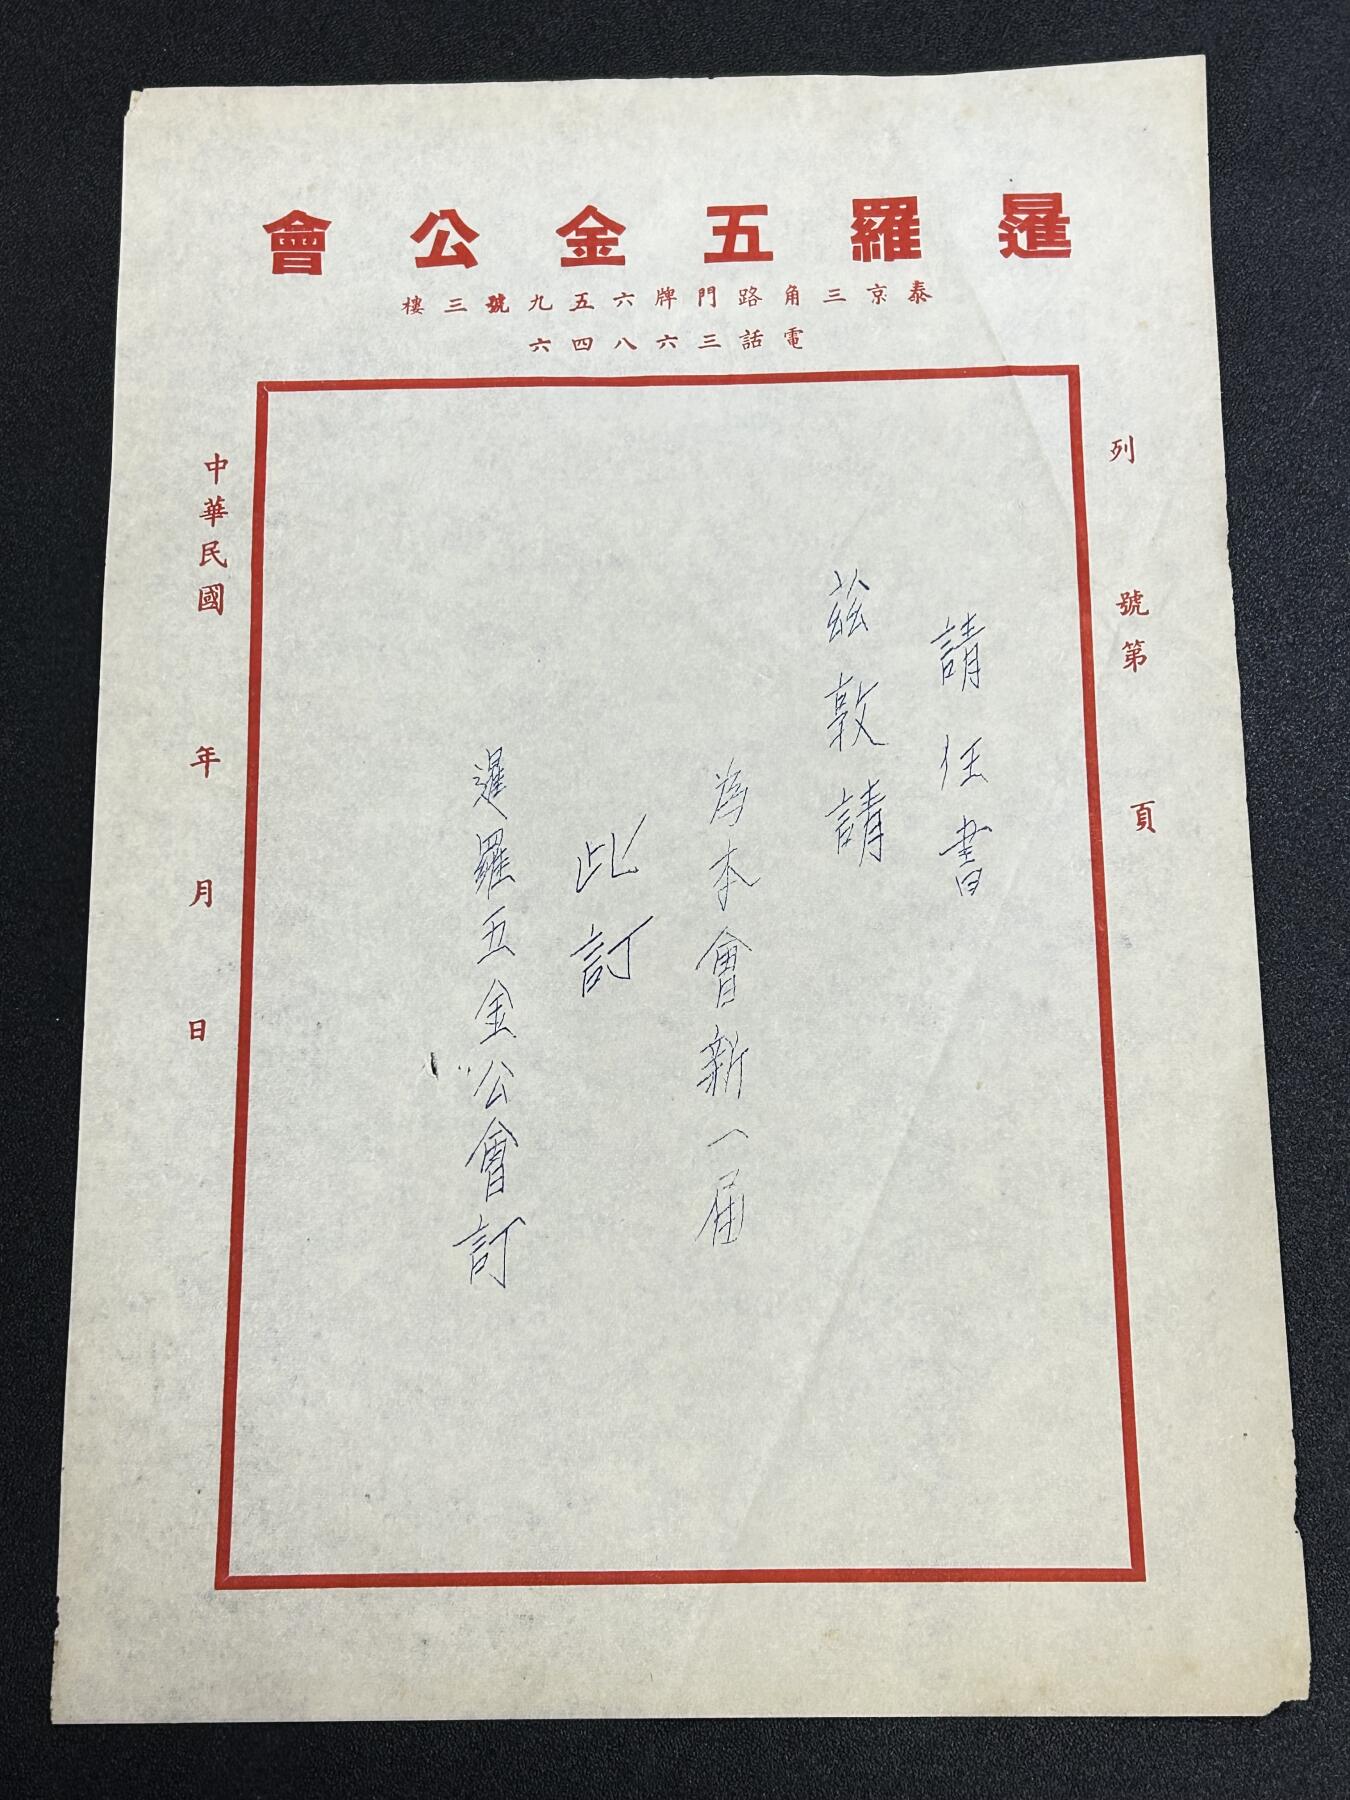 暹羅五金公會
泰京三角路門牌六五九號三樓
電話三六八四六
列 號第 頁
請任書
茲敦請
為本會新一屆
此訂
暹羅五金公會訂
中華民國 年 月 日